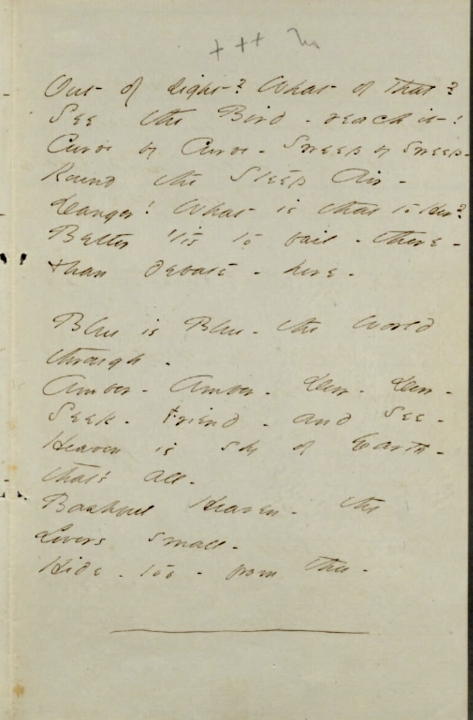 + ++
Out of sight? What of that?
See the Bird - reach it!
Curve by Curve - Sweep by Sweep -
Round the Steep Air -
Danger! What is that to Her?
Better 'tis to fail - there -
than debate - here -
Blue is Blue - the World
through -
Amber - Amber - Dew - Dew -
Seek - Friend - and See -
Heaven is shy of Earth -
that's all -
Bashful Heaven - thy
Lovers small -
Hide - too - from thee -